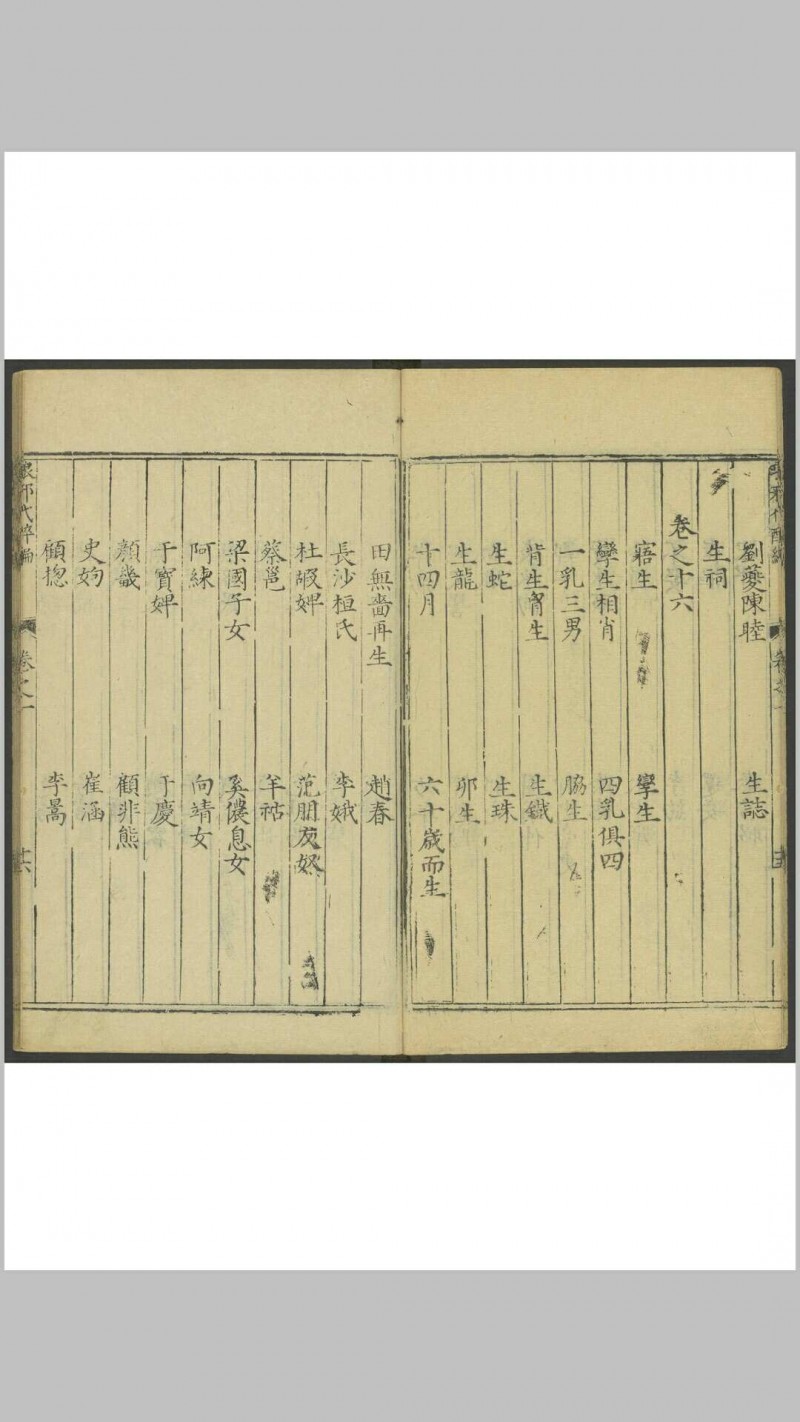 劉夔陳睦 生誌
生祠
卷之十六
寤生 孿生
孿生相肖 四乳俱四
一乳三男 脇生
背生胷生 生鐵
生蛇 生珠
生龍 卵生
十四月 六十歲而生
田無嗇再生 趙春
長沙桓氏 李娥
杜嘏婢 范朋友奴
蔡邕 羊祜
梁國子女 奚儂息女
阿練 向靖女
干寶婢 于慶
顏畿 顧非熊
史姁 崔涵
顧摠 李暠
卷之一 十六